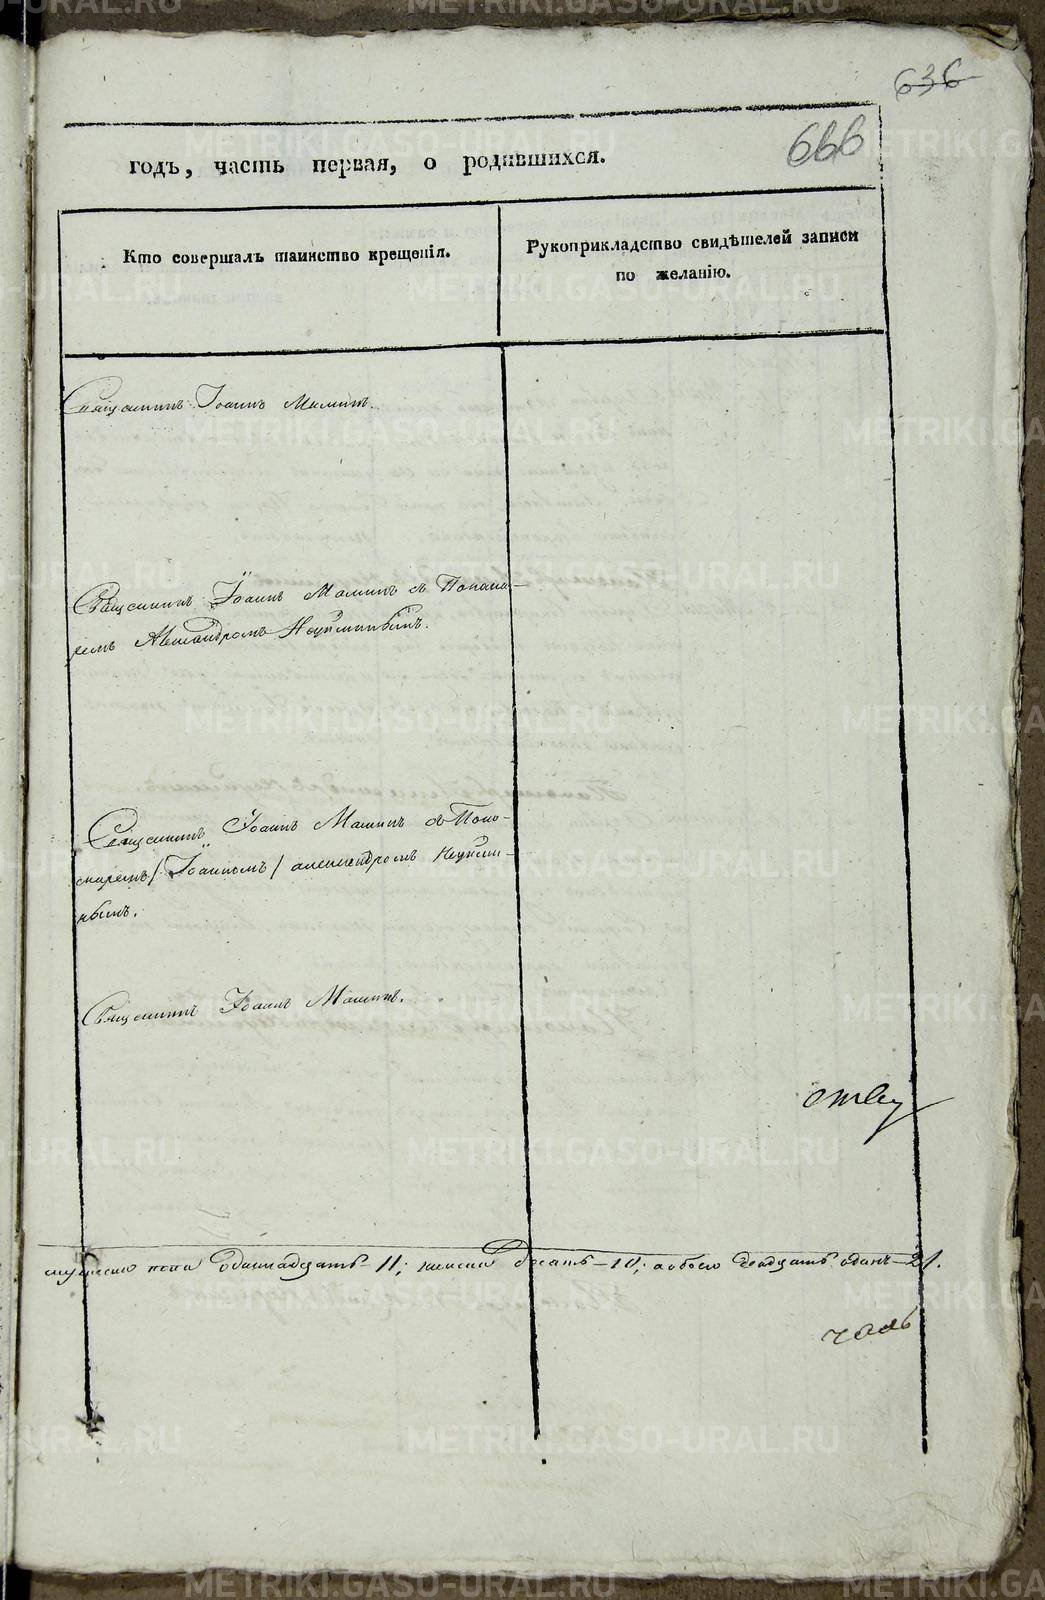 636
666
годъ, часть первая, о родившихся.
Кто совершалъ таинство крещенія.
Рукоприкладство свидѣтелей записи
по желанію.
Священникъ Іоаннъ Маминъ.
Священникъ Іоаннъ Маминъ съ Понама-
ремъ Александромъ Неуйминымъ.
Священникъ Іоаннъ Маминъ съ Поно-
маремъ / Іоанномъ / александромъ Неуймин-
нымъ.
Священникъ Іоаннъ Маминъ.
мужеска пола Одиннадцать 11; женска Десять – 10; а обоего Двадцать одинъ – 21.
часть
METRIKI.GASO-URAL.RU